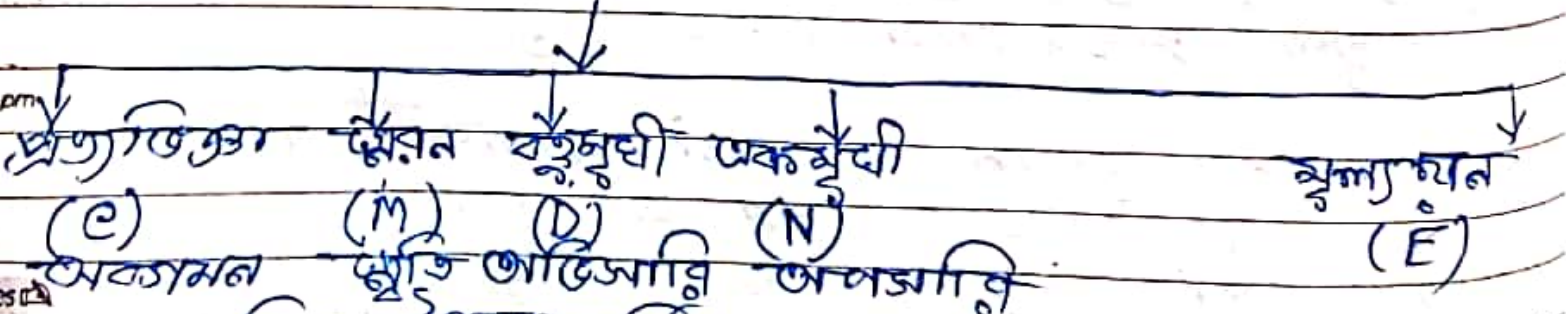 প্রত্যভিজ্ঞা স্মরন বহুমুখী একমুখী মূল্যায়ন
(C) (M) (D) (N) (E)
অবগমন স্মৃতি অভিসারি অপসারি